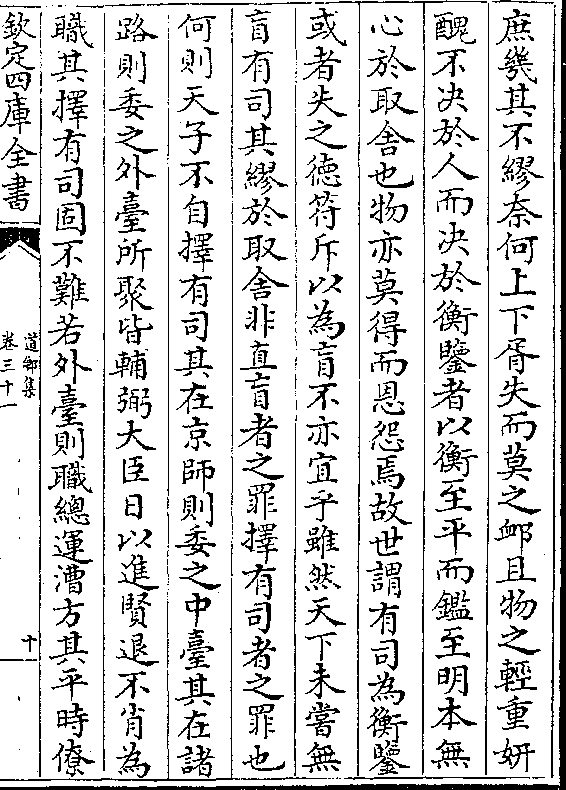 庶幾其不繆奈何上下胥失而莫之䘏且物之輕重妍
醜不決於人而决於衡鑒者以衡至平而鑑至明本無
心於取舍也物亦莫得而恩怨焉故世謂有司為衡鑒
或者失之德符斥以為盲不亦宜乎雖然天下未嘗無
盲有司其繆於取舍非直盲者之罪擇有司者之罪也
何則天子不自擇有司其在京師則委之中臺其在諸
路則委之外臺所聚皆輔弼大臣日以進賢退不肖為
職其擇有司固不難若外臺則職總運漕方其平時僚
欽定四庫全書
道鄉集
卷三十一
十